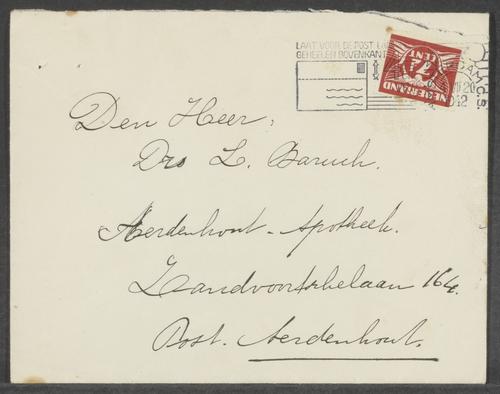 LAAT VOOR DE POST
GEHEELEN BOVENKANT
7½
CENT
NEDERLAND
Den Heer,
Drs L. Baruch.
Aerdenhout-Apotheek.
Zandvoortschelaan 164.
Post. Aerdenhout.